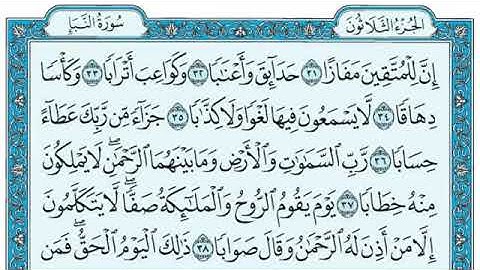 الجُزْءُ الثَّلَاثُونَ سُورَةُ النَّبَإِ
إِنَّ لِلْمُتَّقِينَ مَفَازًا ٣١ حَدَآئِقَ وَأَعْنَٰبًا ٣٢ وَكَوَاعِبَ أَتْرَابًا ٣٣ وَكَأْسًا
دِهَاقًا ٣٤ لَّا يَسْمَعُونَ فِيهَا لَغْوًا وَلَا كِذَّٰبًا ٣٥ جَزَآءً مِّن رَّبِّكَ عَطَآءً
حِسَابًا ٣٦ رَّبِّ ٱلسَّمَٰوَٰتِ وَٱلْأَرْضِ وَمَا بَيْنَهُمَا ٱلرَّحْمَٰنِ ۖ لَا يَمْلِكُونَ
مِنْهُ خِطَابًا ٣٧ يَوْمَ يَقُومُ ٱلرُّوحُ وَٱلْمَلَٰٓئِكَةُ صَفًّا ۖ لَّا يَتَكَلَّمُونَ
إِلَّا مَنْ أَذِنَ لَهُ ٱلرَّحْمَٰنُ وَقَالَ صَوَابًا ٣٨ ذَٰلِكَ ٱلْيَوْمُ ٱلْحَقُّ ۖ فَمَن